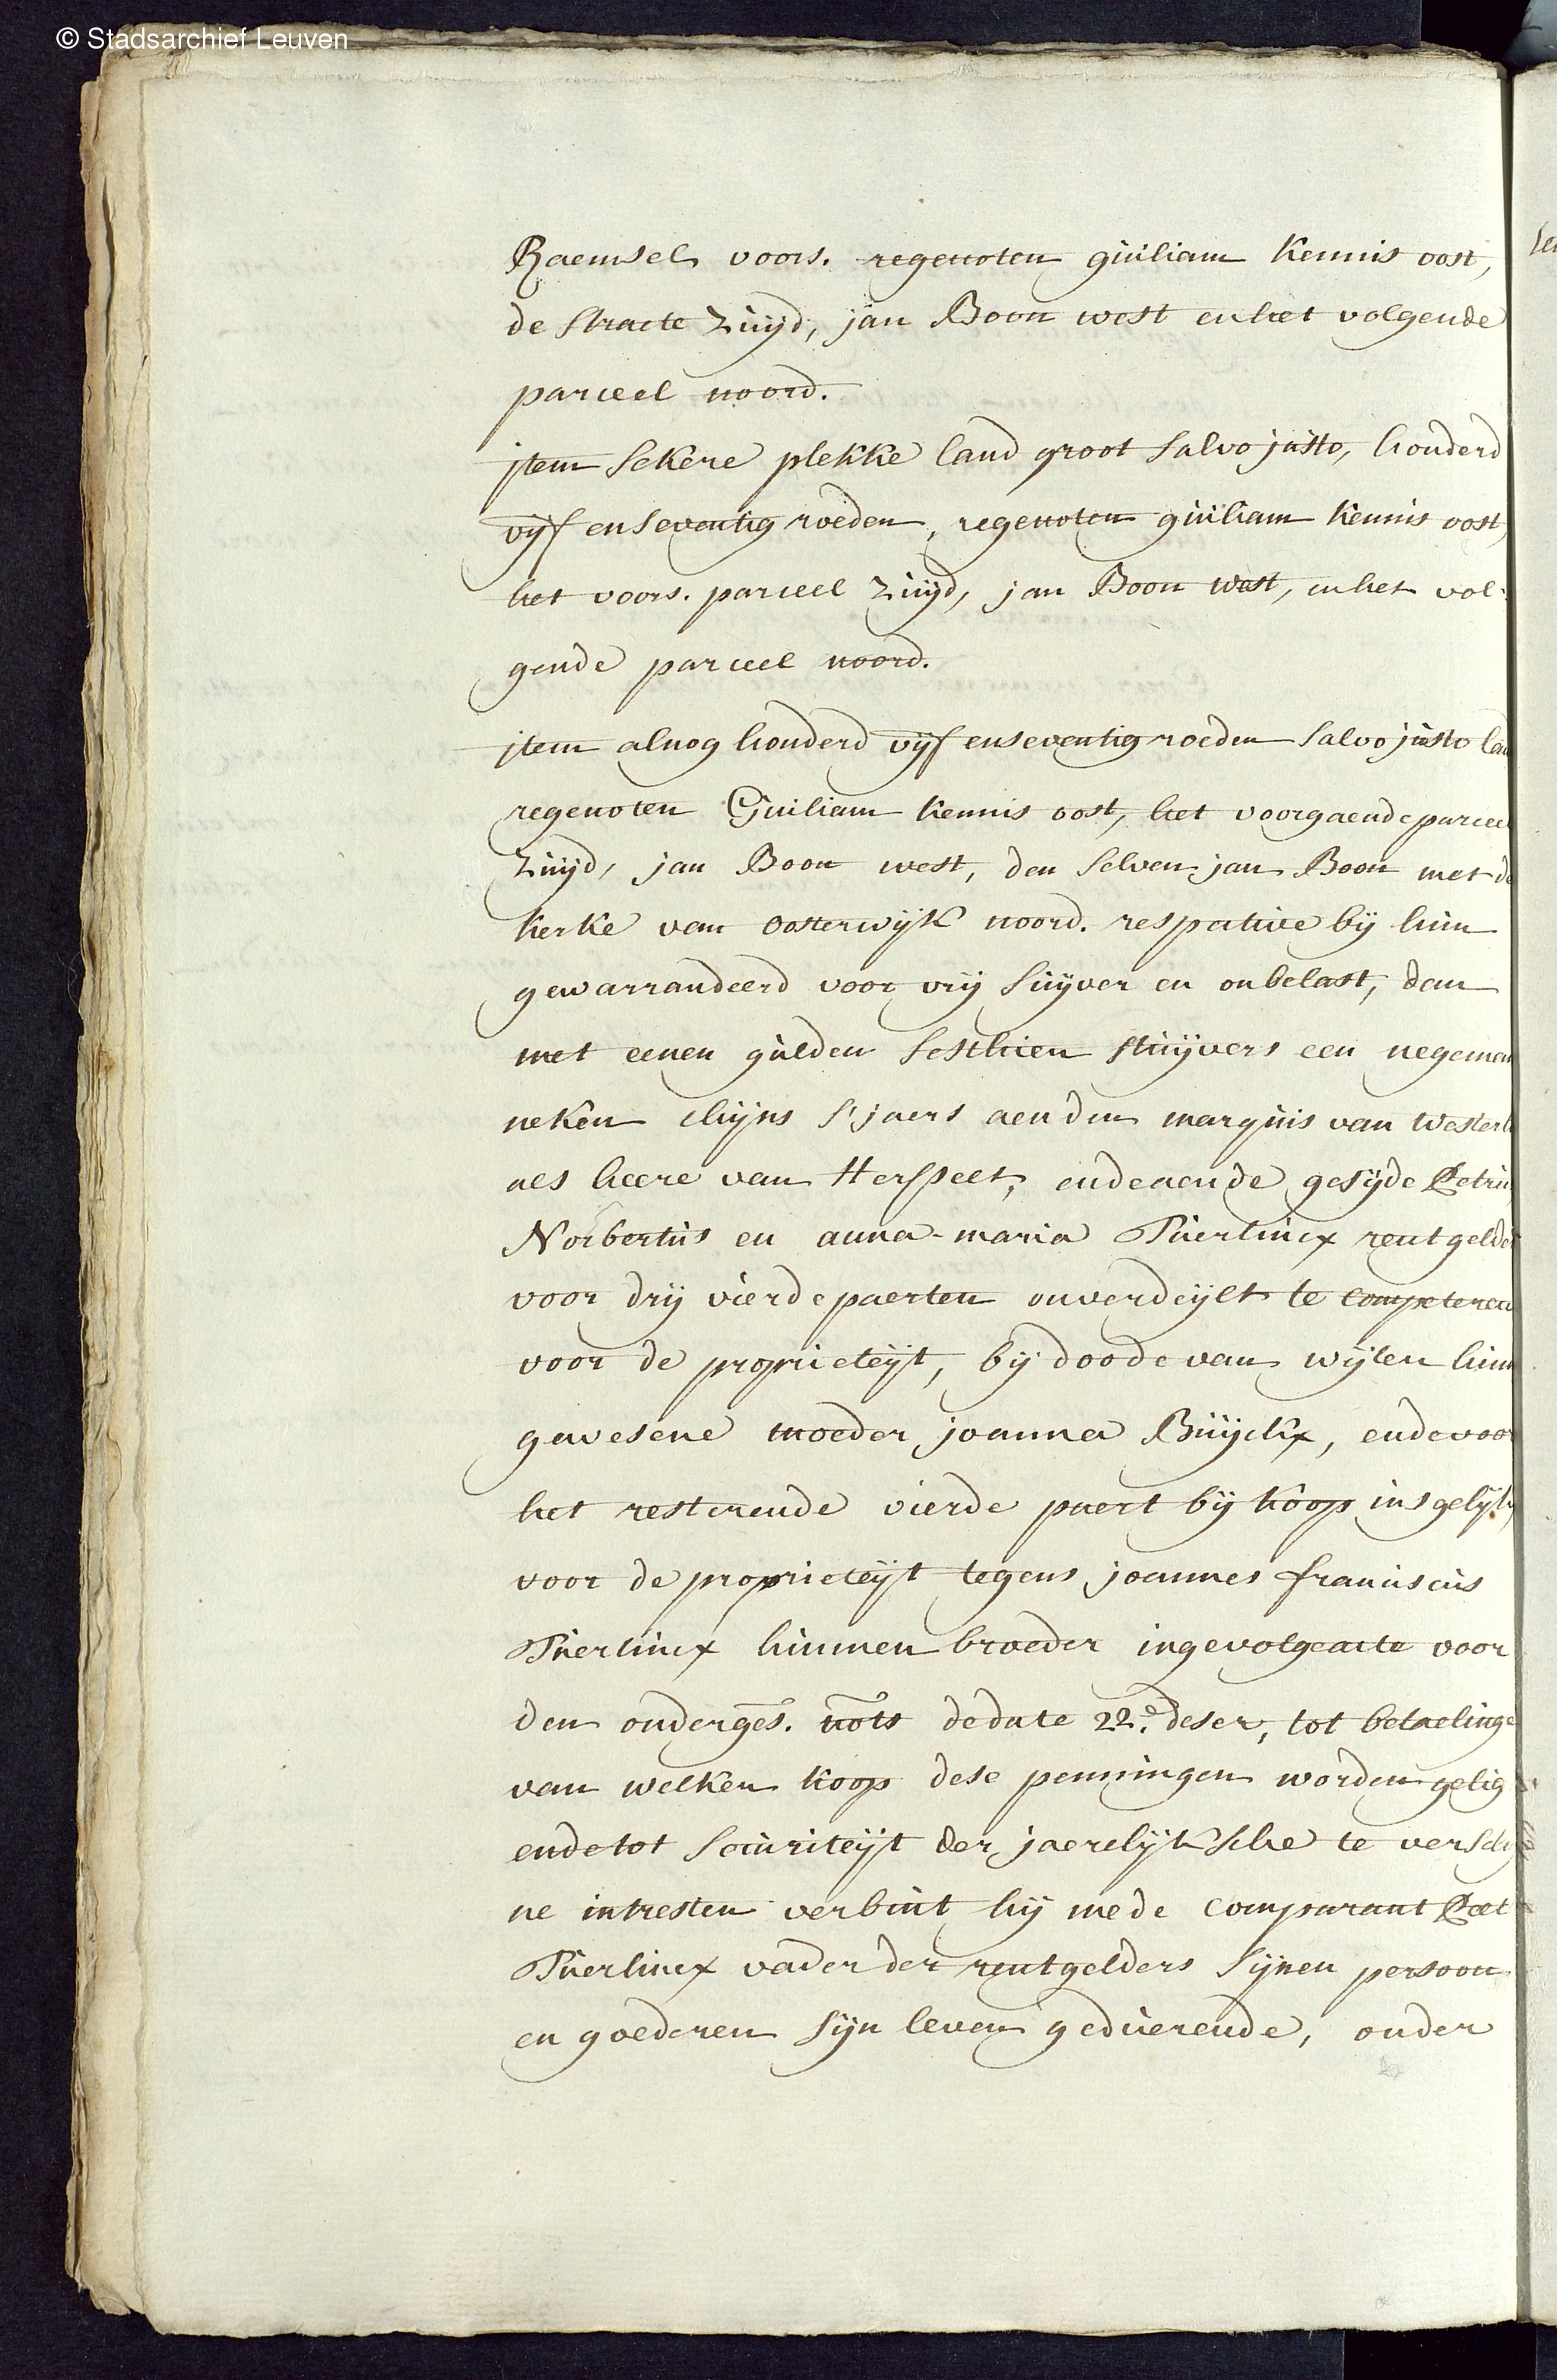 © Stadsarchief Leuven
Raemsel voors. regenoten guiliam Kennis oost,
de straete zuijd, jan Boon west en het volgende
parceel noord.
jtem sekere plekke land groot salvo justo, honderd
vijf en seventig roeden, regenoten guiliam Kennis oost,
het voors. parceel zuijd, jan Boon west, en het vol:
gende parceel noord.
jtem alnog honderd vijf en seventig roeden salvo justo
regenoten Guiliam Kennis oost, het voorgaende parceel
zuijd, jan Boon west, den selven jan Boon met de
kerke van oosterwijk noord. respective bij hun
gewarrandeerd voor vrij suijver en onbelast, dan
met eenen gulden sesthien stuijvers een negemen
neken chijns s'jaers aen den marquis van Westerl
als heere van Herselt, ende aen de gesijde Petrus
Norbertus en anna-maria Tuerlincx rentgelde
voor drij vierde paerten onverdeijlt te competeren
voor de proprieteijt, bij doode van wijlen hun
gewesene moeder joanna Buijckx, ende voor
het resterende vierde paert bij koop insgelijk
voor de proprieteijt tegens joannes franciscus
Tuerlincx hunnen broeder ingevolge acte voor
den onderges. nots de date 22.e deser, tot betaelinge
van welken koop dese penningen worden gelig
ende tot securiteijt der jaerelijksche te versch
ne intresten verbint hij mede comparant Pet
Tuerlincx vader der rentgelders sijnen persoon
en goederen sijn leven geduerende, onder